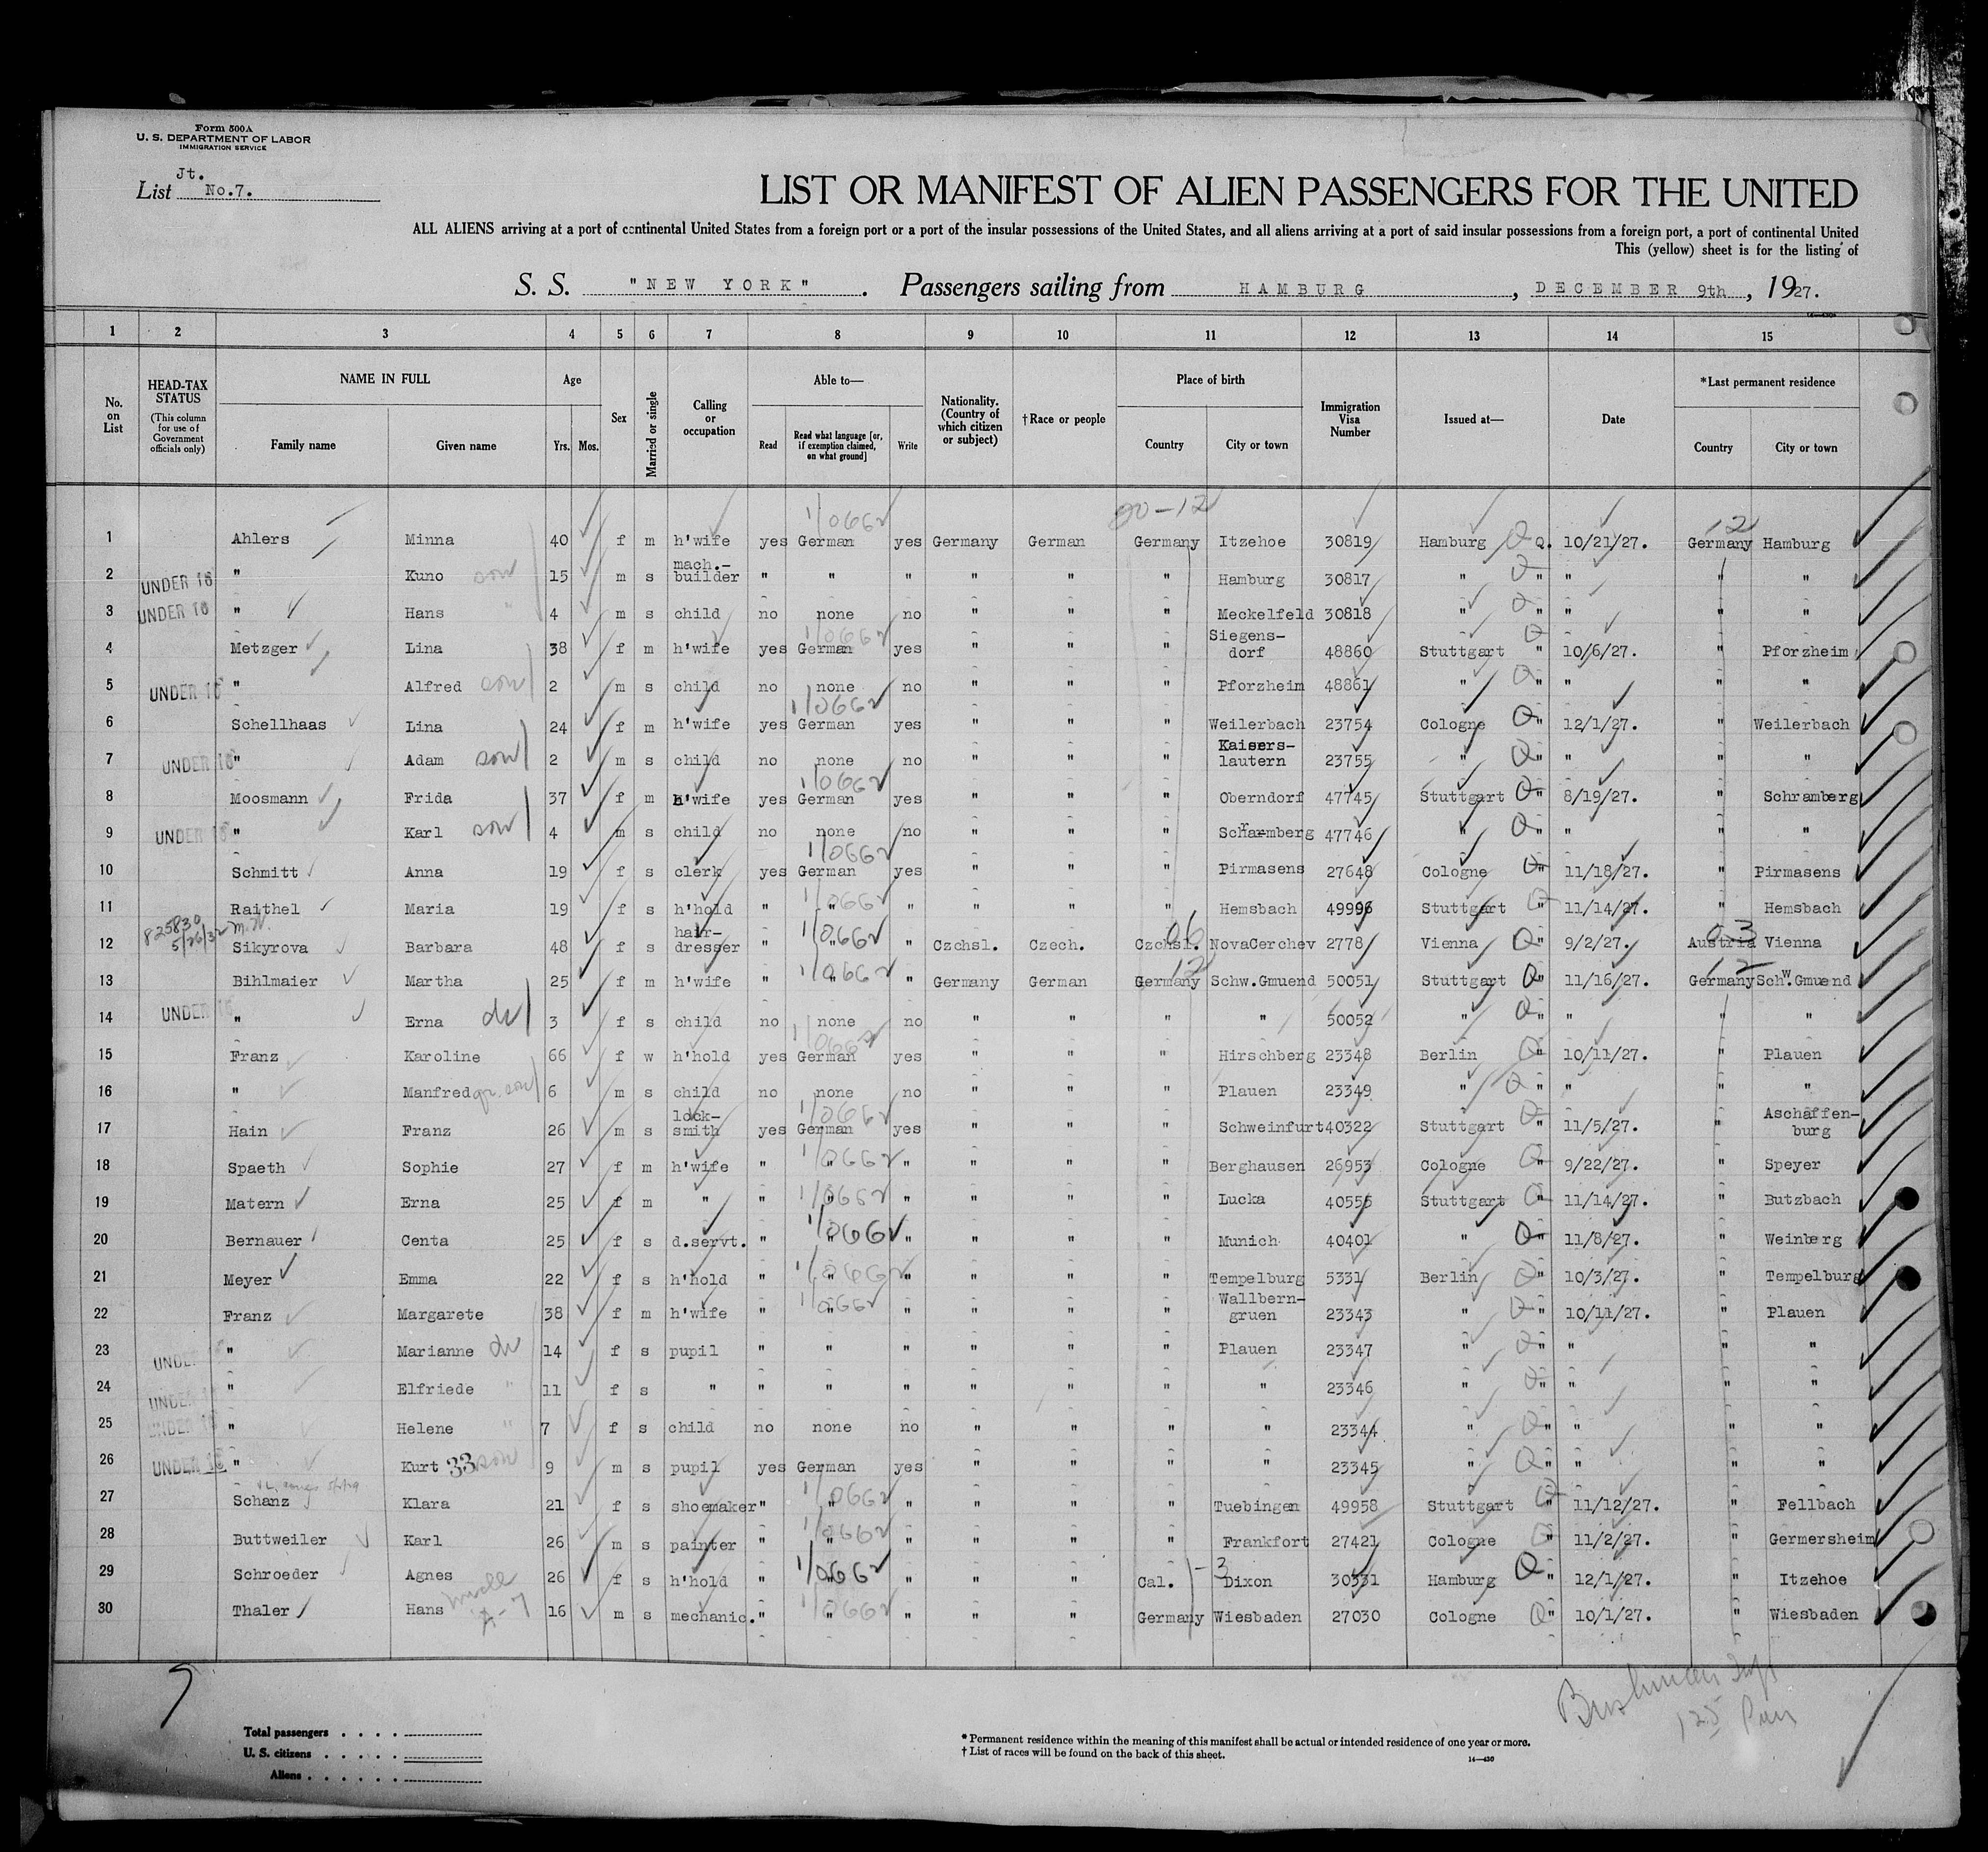 Form 500A
U. S. DEPARTMENT OF LABOR
IMMIGRATION SERVICE
Jt.
List No.7.
LIST OR MANIFEST OF ALIEN PASSENGERS FOR THE UNITED
ALL ALIENS arriving at a port of continental United States from a foreign port or a port of the insular possessions of the United States, and all aliens arriving at a port of said insular possessions from a foreign port, a port of continental United
This (yellow) sheet is for the listing of
S. S. "NEW YORK". Passengers sailing from HAMBURG, DECEMBER 9th, 1927.
14—430
1 2 3 4 5 6 7 8 9 10 11 12 13 14 15
No. on List HEAD-TAX STATUS (This column for use of Government officials only) NAME IN FULL Family name Given name Age Yrs. Mos. Sex Married or single Calling or occupation Able to— Read Read what language [or, if exemption claimed, on what ground] Write Nationality. (Country of which citizen or subject) †Race or people Place of birth Country City or town Immigration Visa Number Issued at— Date *Last permanent residence Country City or town
1/0662 00-12 12
1 Ahlers Minna 40 f m h'wife yes German yes Germany German Germany Itzehoe 30819 Hamburg Q. 10/21/27. Germany Hamburg
2 UNDER 16 " Kuno son 15 m s mach.-builder " " " " " " Hamburg 30817 " " " " "
3 UNDER 16 " Hans " 4 m s child no none no " " " Meckelfeld 30818 " " " " "
4 Metzger Lina 38 f m h'wife yes German 1/0662 yes " " " Siegens-dorf 48860 Stuttgart " 10/6/27. " Pforzheim
5 UNDER 16 " Alfred son 2 m s child no none no " " " Pforzheim 48861 " " " " "
6 Schellhaas Lina 24 f m h'wife yes German 1/0662 yes " " " Weilerbach 23754 Cologne Q" 12/1/27. " Weilerbach
7 UNDER 16 " Adam son 2 m s child no none no " " " Kaisers-lautern 23755 " Q" " " "
8 Moosmann Frida 37 f m h'wife yes German 1/0662 yes " " " Oberndorf 47745 Stuttgart Q" 8/19/27. " Schramberg
9 UNDER 16 " Karl son 4 m s child no none no " " " Scharmberg 47746 " Q" " " "
10 Schmitt Anna 19 f s clerk yes German 1/0662 yes " " " Pirmasens 27648 Cologne Q" 11/18/27. " Pirmasens
11 Raithel Maria 19 f s h'hold " " 1/0662 " " " " Hemsbach 49996 Stuttgart Q" 11/14/27. " Hemsbach
825830 5/26/32 M.W.
12 Sikyrova Barbara 48 f s hair-dresser " " 1/0662 " Czchsl. Czech. Czchsl. 06 NovaCerchev 2778 Vienna Q" 9/2/27. Austria 03 Vienna
13 Bihlmaier Martha 25 f m h'wife " " 1/0662 " Germany German Germany 12 Schw.Gmuend 50051 Stuttgart Q" 11/16/27. Germany 12 Schw.Gmuend
14 UNDER 16 " Erna da 3 f s child no none no " " " " 50052 " Q" " " "
15 Franz Karoline 66 f w h'hold yes German 1/0662 yes " " " Hirschberg 23348 Berlin Q" 10/11/27. " Plauen
16 " Manfred gr. son 6 m s child no none no " " " Plauen 23349 " Q" " " "
17 Hain Franz 26 m s lock-smith yes German 1/0662 yes " " " Schweinfurt 40322 Stuttgart Q" 11/5/27. " Aschaffen-burg
18 Spaeth Sophie 27 f m h'wife " " 1/0662 " " " " Berghausen 26953 Cologne Q" 9/22/27. " Speyer
19 Matern Erna 25 f m " " " 1/0662 " " " " Lucka 40556 Stuttgart Q" 11/14/27. " Butzbach
20 Bernauer Centa 25 f s d.servt. " " 1/0662 " " " " Munich 40401 " Q" 11/8/27. " Weinberg
21 Meyer Emma 22 f s h'hold " " 1/0662 " " " " Tempelburg 5331 Berlin Q" 10/3/27. " Tempelburg
22 Franz Margarete 38 f m h'wife " " 1/0662 " " " " Wallbern-gruen 23343 " Q" 10/11/27. " Plauen
23 UNDER " Marianne da 14 f s pupil " " " " " " Plauen 23347 " Q" " " "
24 UNDER " Elfriede " 11 f s " " " " " " " " 23346 " Q" " " "
25 UNDER 16 " Helene " 7 f s child no none no " " " " 23344 " Q" " " "
26 UNDER 16 " Kurt 33 son 9 m s pupil yes German yes " " " " 23345 " Q" " " "
27 Schanz Klara 21 f s shoemaker " " 1/0662 " " " " Tuebingen 49958 Stuttgart Q" 11/12/27. " Fellbach
28 Buttweiler Karl 26 m s painter " " 1/0662 " " " " Frankfort 27421 Cologne Q" 11/2/27. " Germersheim
29 Schroeder Agnes 26 f s h'hold " " 1/0662 " " " Cal. -3 Dixon 30331 Hamburg Q" 12/1/27. " Itzehoe
30 Thaler Hans 16 m s mechanic. " " 1/0662 " " " Germany Wiesbaden 27030 Cologne Q" 10/1/27. " Wiesbaden
Total passengers . . . .
U. S. citizens . . . . .
Aliens . . . . . .
* Permanent residence within the meaning of this manifest shall be actual or intended residence of one year or more.
† List of races will be found on the back of this sheet.
14—430